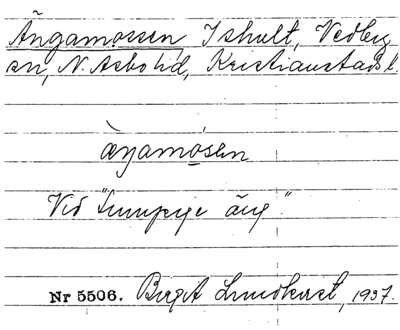 Ängamossen Ishult, Vedby
sn, N. Åsbo hd, Kristianstads l.
æŋamòsen
Vid "Sumpige äng".
Nr 5506. Birgit Lundkvist, 1937.